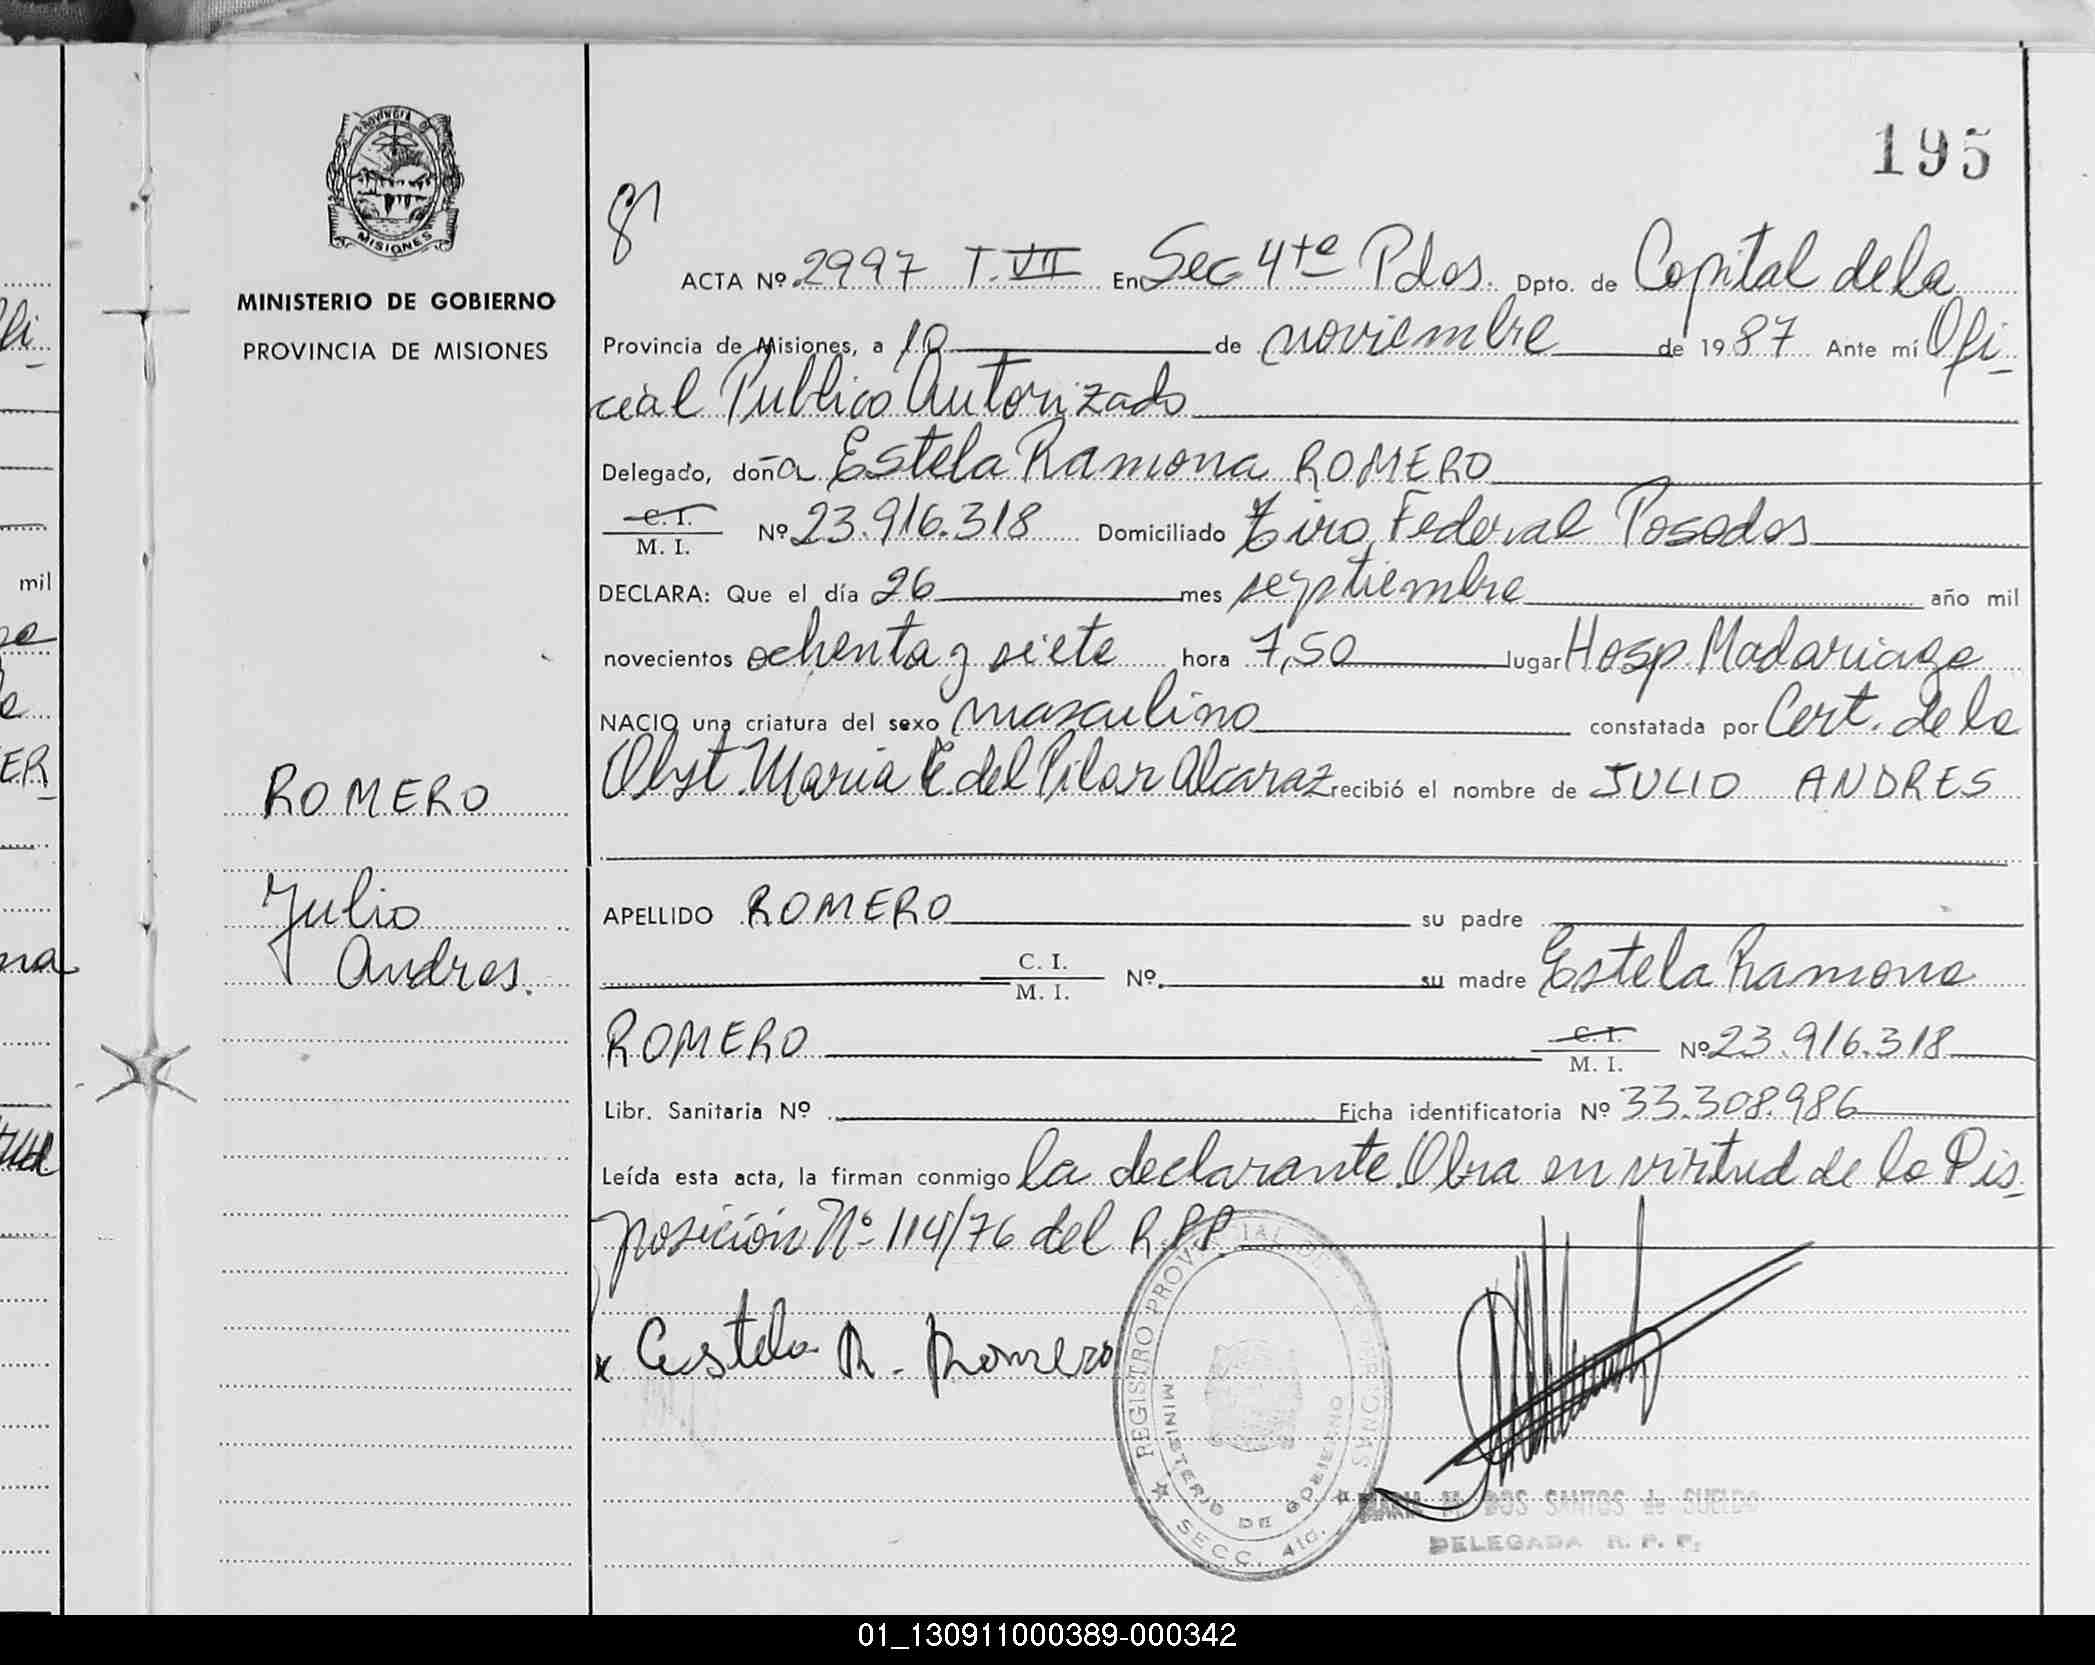 195
PROVINCIA DE
MISIONES
MINISTERIO DE GOBIERNO
PROVINCIA DE MISIONES
ACTA Nº 2997 T. VII En Sec 4ta Pdas. Dpto. de Capital de la
Provincia de Misiones, a 10 de noviembre de 1987 Ante mí Ofi-
cial Publico Autorizado
Delegado, doña Estela Ramona ROMERO
C. I.
M. I. Nº 23.916.318 Domiciliado Tiro Federal Posadas
DECLARA: Que el día 26 mes septiembre año mil
novecientos ochenta y siete hora 7,50 lugar Hosp. Madariaga
NACIO una criatura del sexo masculino constatada por Cert. de la
Obst. Maria E. del Pilar Alcaraz recibió el nombre de JULIO ANDRES
ROMERO
Julio
Andres.
APELLIDO ROMERO su padre
C. I.
M. I. Nº su madre Estela Ramona
ROMERO C. I.
M. I. Nº 23.916.318
Libr. Sanitaria Nº Ficha identificatoria Nº 33.308.986
Leída esta acta, la firman conmigo la declarante. Obra en virtud de la Dis-
posición Nº 114/76 del R.P.P.
x Estela R. Romero
REGISTRO PROVINCIAL DE
MINISTERIO DE GOBIERNO
SECC. 4ta.
MARIA M. DOS SANTOS de SUELDO
DELEGADA R. P. P.
mil
01_130911000389-000342